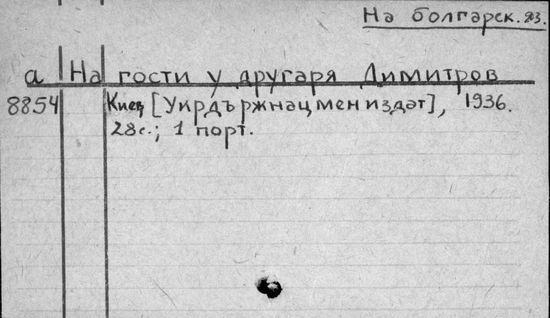 На болгарск. яз.
а На гости у другаря Димитров
8854 Киев [Укрдържнацмениздат], 1936.
28с.; 1 порт.